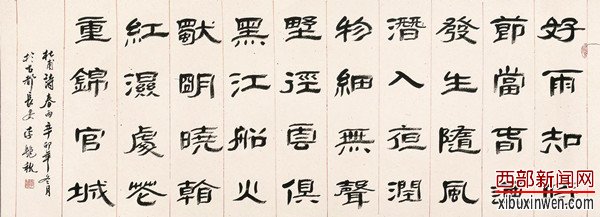 好雨知
節當春
發生隨風
潛入夜潤
物細無聲
野徑雲俱
黑江船火
獨明曉看
紅濕處花
重錦官城
杜甫詩春雨辛卯年冬月
於古都長安李艷秋
西部新闻网
xibuxinwen.com